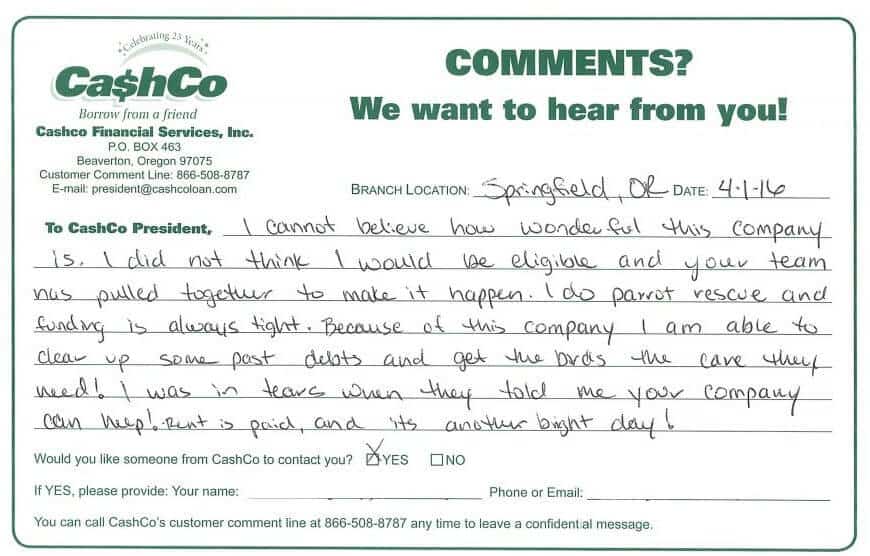 Celebrating 25 Years
Ca$hCo
Borrow from a friend
Cashco Financial Services, Inc.
P.O. BOX 463
Beaverton, Oregon 97075
Customer Comment Line: 866-508-8787
E-mail: president@cashcoloan.com
COMMENTS?
We want to hear from you!
BRANCH LOCATION: Springfield, OR DATE: 4-1-16
To CashCo President, I cannot believe how wonderful this company
is. I did not think I would be eligible and your team
has pulled together to make it happen. I do parrot rescue and
funding is always tight. Because of this company I am able to
clear up some past debts and get the birds the care they
need! I was in tears when they told me your company
can help! Rent is paid, and its another bright day!
Would you like someone from CashCo to contact you? YES NO
If YES, please provide: Your name: Phone or Email:
You can call CashCo's customer comment line at 866-508-8787 any time to leave a confidential message.